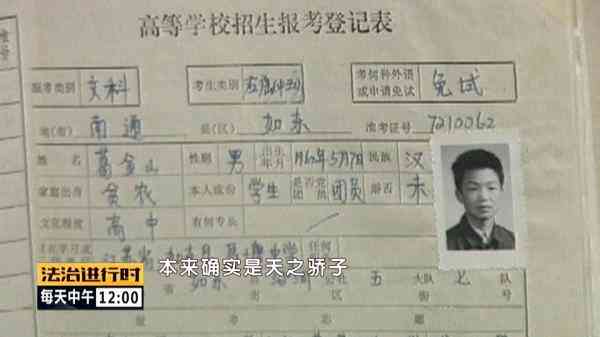 高等学校招生报考登记表
报考类别 文科 考生类别 考何种外语或申请免试 免试
地(市) 南通 县(区) 如东 准考证号 7210062
姓名 葛 性别 男 出生年月 5月7日 民族 汉
家庭出身 贫农 本人成份 学生 是否党团员 团员 婚否 未
文化程度 高中 有何专长
任何
如东 五 大队 七 队
街 号
报考志愿
本来确实是天之骄子
法治进行时
每天中午 12:00